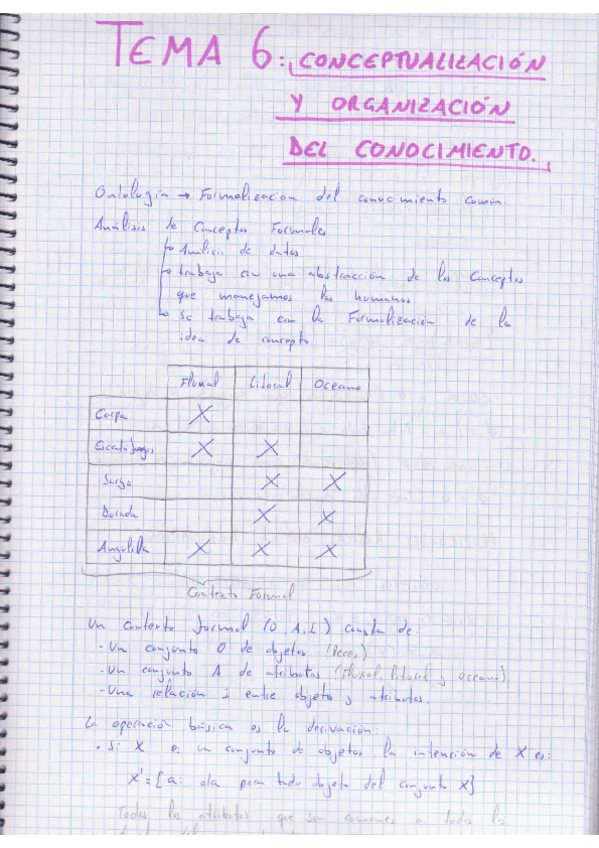 TEMA 6: CONCEPTUALIZACIÓN
Y ORGANIZACIÓN
DEL CONOCIMIENTO.
Ontología → Formalización del conocimiento común.
Análisis de Conceptos Formales
↳ Análisis de datos
↳ trabaja con una abstracción de los Conceptos
que manejamos los humanos
↳ Se trabaja con la Formalización de la
idea de concepto.
Fluvial Litoral Oceano
Carpa X
Escatofagos X X
Sargo X X
Dorada X X
Anguilla X X X
Contexto Formal
Un contexto formal (O, A, I) consta de:
- Un conjunto O de objetos (Peces)
- Un conjunto A de atributos (Fluvial, litoral y oceano)
- Una relación I entre objetos y atributos.
La operación básica es la derivación:
• Si X es un conjunto de objetos, la intención de X es:
X' = [a: oIa para todo objeto del conjunto X]
Todos los atributos que son comunes a todos los